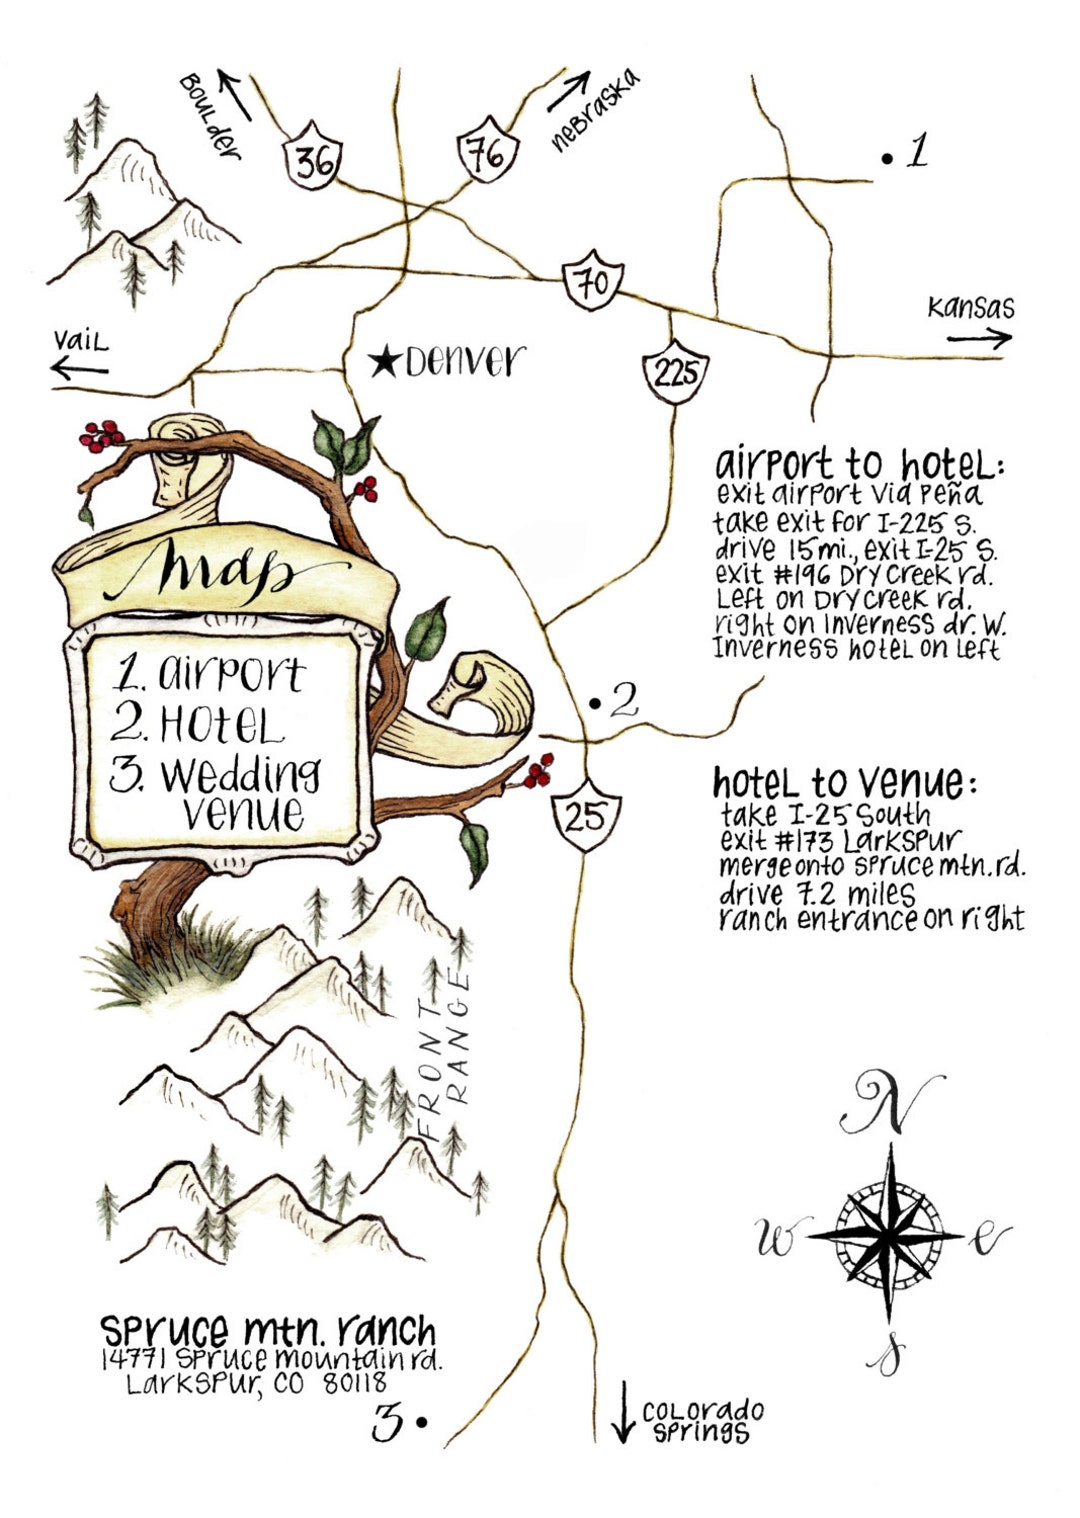 Boulder
36
76
nebraska
1
70
Kansas
Vail
Denver
225
map
1. airport
2. Hotel
3. wedding
venue
airport to hotel:
exit airport via Peña
take exit for I-225 S.
drive 15 mi., exit I-25 S.
exit #196 Dry Creek rd.
Left on Dry Creek rd.
right on Inverness dr. W.
Inverness hotel on Left
2
25
hotel to venue:
take I-25 South
exit #173 Larkspur
merge onto spruce mtn. rd.
drive 7.2 miles
ranch entrance on right
FRONT
RANGE
N
W
e
s
spruce mtn. ranch
14771 spruce mountain rd.
Larkspur, CO 80118
3
Colorado
Springs